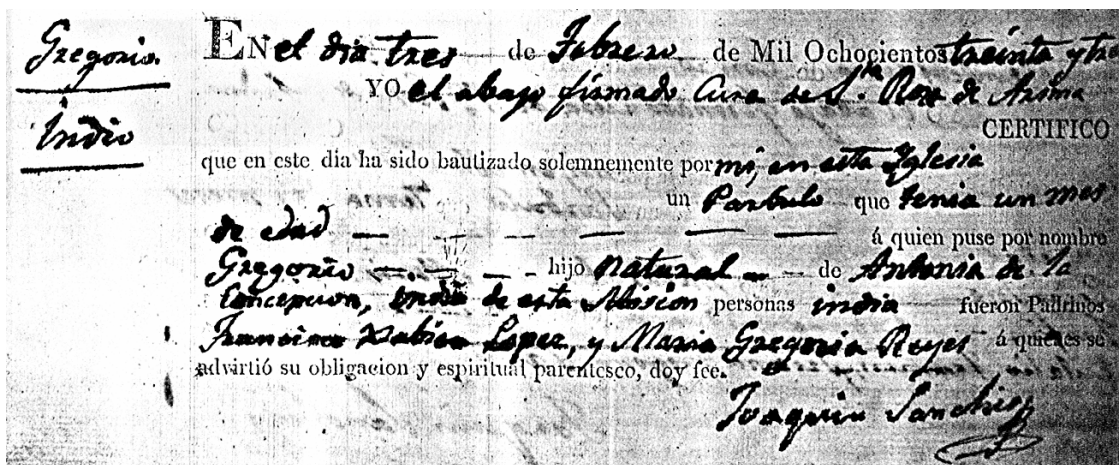 Gregorio.
Indio
EN el dia tres de Febrero de Mil Ochocientos treinta y tr
YO el abajo firmado Cura de Sta. Rosa de Arima
CERTIFICO
que en este dia ha sido bautizado solemnemente por mi, en esta Iglesia
un Parbulo que tenia un mes
de edad — — — — — — — á quien puse por nombre
Gregorio — . — — - hijo natural — — de Antonia de la
Concepcion, India de esta Mision personas india fueron Padrinos
Francisco Lopez, y Maria Gregoria Reyes á quienes se
advirtió su obligacion y espiritual parentesco, doy fee.
Joaquin Sanchez